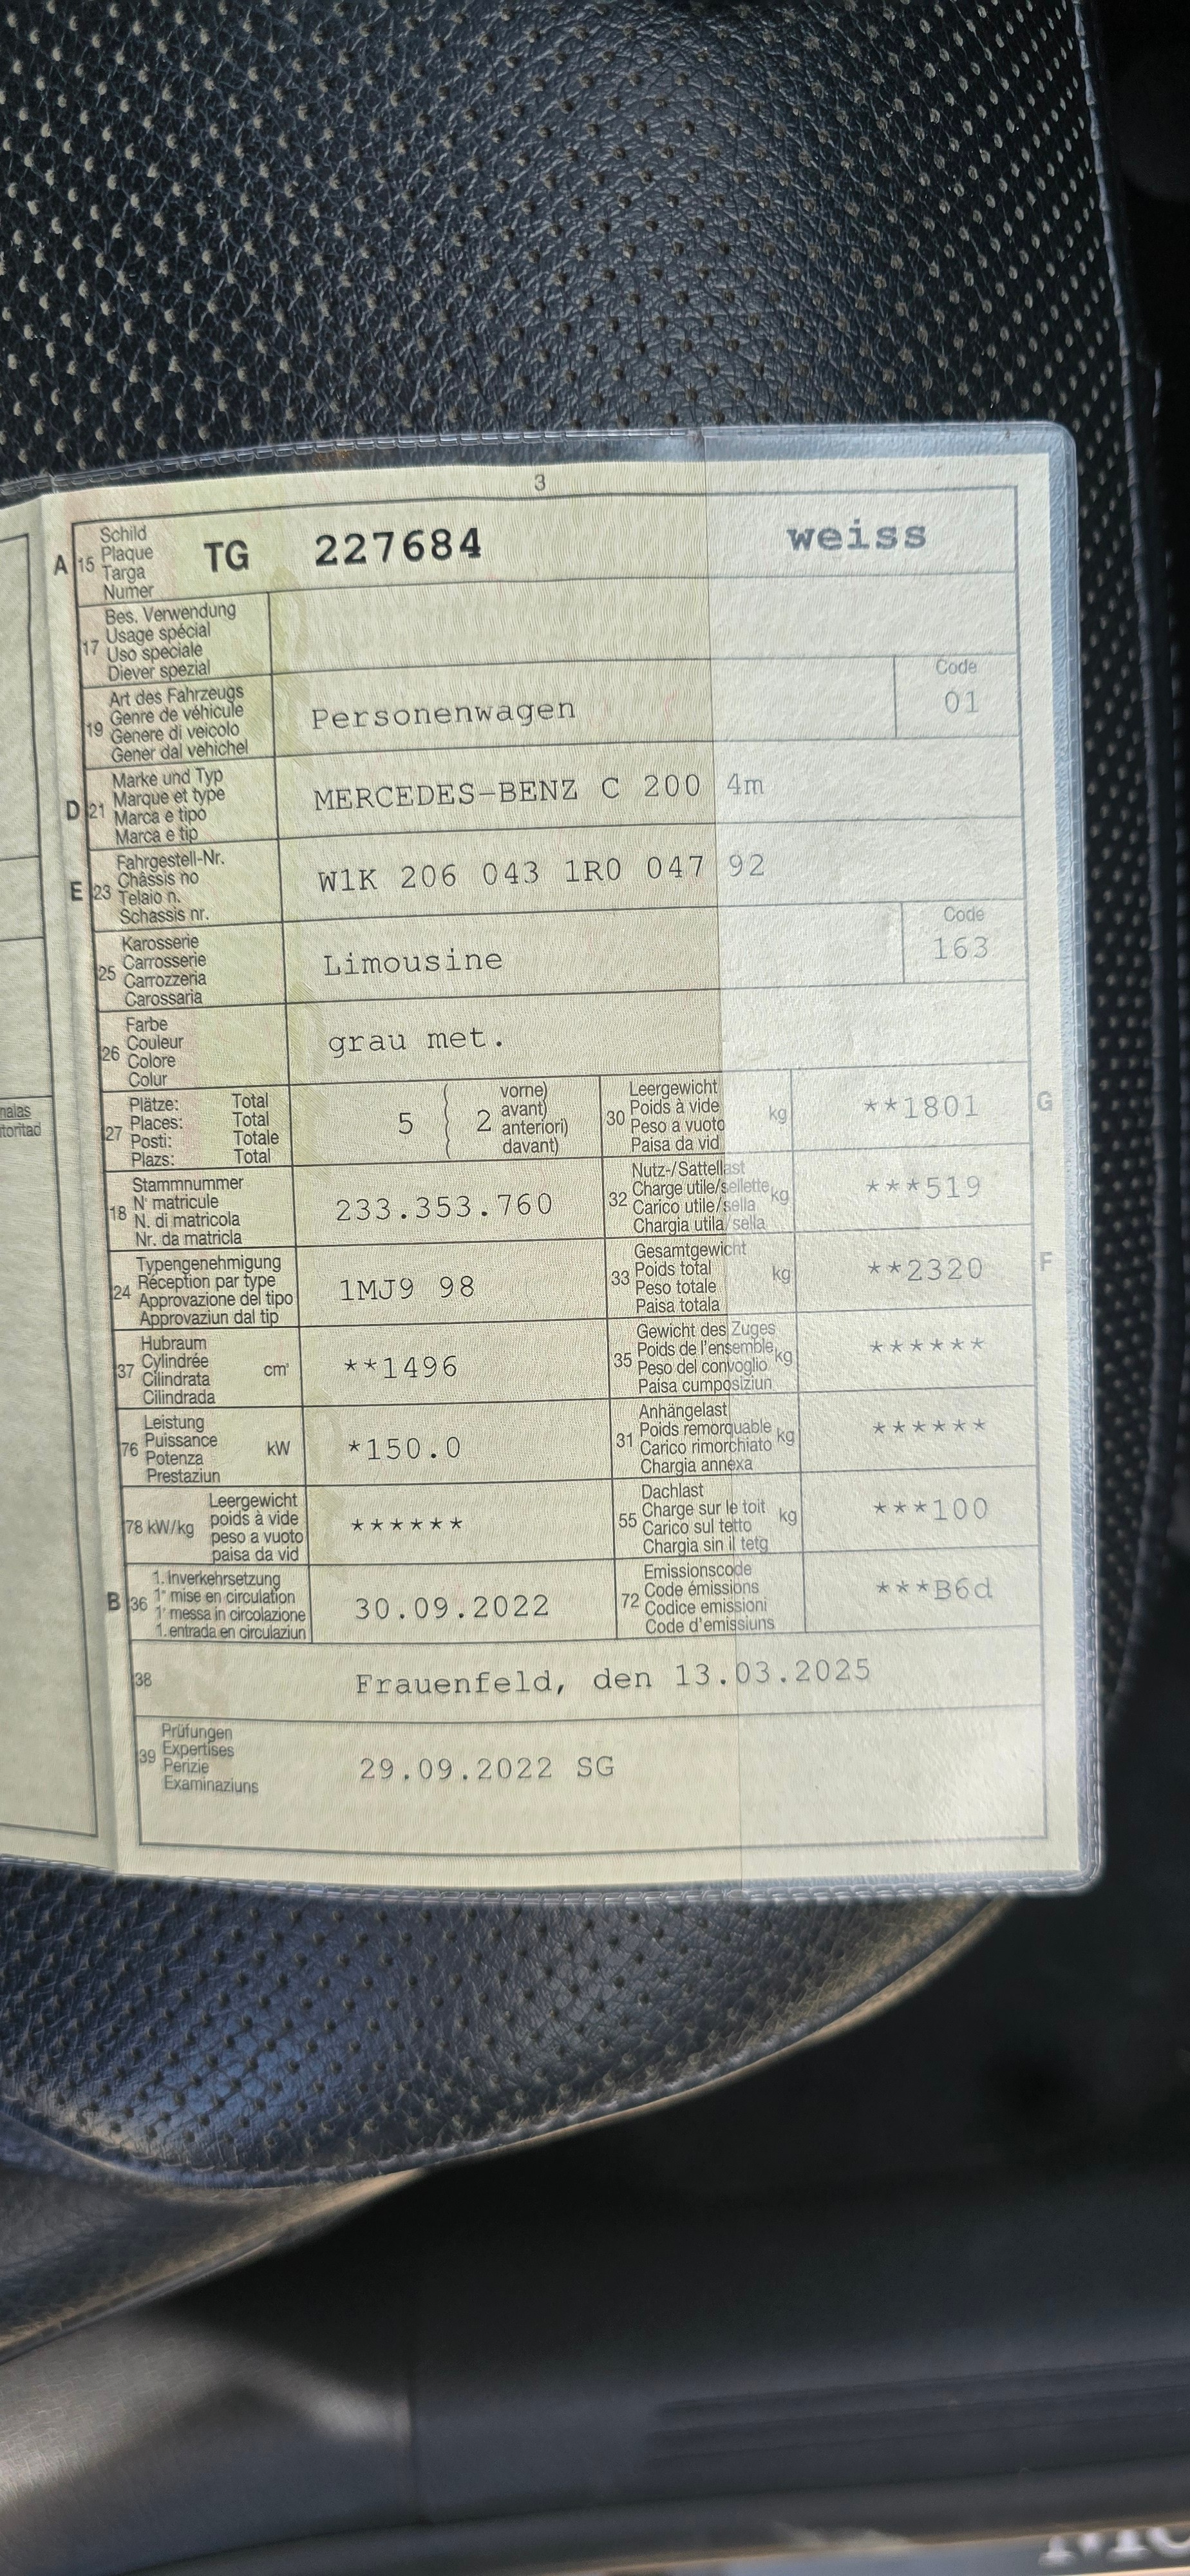 3
A 15 Schild
Plaque
Targa
Numer
TG 227684 weiss
17 Bes. Verwendung
Usage spécial
Uso speciale
Diever spezial
19 Art des Fahrzeugs
Genre de véhicule
Genere di veicolo
Gener dal vehichel
Personenwagen
Code
01
D 21 Marke und Typ
Marque et type
Marca e tipo
Marca e tip
MERCEDES-BENZ C 200 4m
E 23 Fahrgestell-Nr.
Châssis no
Telaio n.
Schassis nr.
W1K 206 043 1R0 047 92
25 Karosserie
Carrosserie
Carrozzeria
Carossaria
Limousine
Code
163
26 Farbe
Couleur
Colore
Colur
grau met.
27 Plätze: Total
Places: Total
Posti: Totale
Plazs: Total
5 ( 2 vorne)
avant)
anteriori)
davant)
30 Leergewicht
Poids à vide
Peso a vuoto
Paisa da vid
kg **1801 G
18 Stammnummer
N° matricule
N. di matricola
Nr. da matricla
233.353.760
32 Nutz-/Sattellast
Charge utile/sellette
Carico utile/sella
Chargia utila/sella
kg ***519
24 Typengenehmigung
Réception par type
Approvazione del tipo
Approvaziun dal tip
1MJ9 98
33 Gesamtgewicht
Poids total
Peso totale
Paisa totala
kg **2320 F
37 Hubraum
Cylindrée
Cilindrata
Cilindrada
cm³ **1496
35 Gewicht des Zuges
Poids de l'ensemble
Peso del convoglio
Paisa cumposiziun
kg ******
76 Leistung
Puissance
Potenza
Prestaziun
kW *150.0
31 Anhängelast
Poids remorquable
Carico rimorchiato
Chargia annexa
kg ******
78 kW/kg Leergewicht
poids à vide
peso a vuoto
paisa da vid
******
55 Dachlast
Charge sur le toit
Carico sul tetto
Chargia sin il tetg
kg ***100
B 36 1. Inverkehrsetzung
1re mise en circulation
1a messa in circolazione
1. entrada en circulaziun
30.09.2022
72 Emissionscode
Code émissions
Codice emissioni
Code d'emissiuns
***B6d
38 Frauenfeld, den 13.03.2025
39 Prüfungen
Expertises
Perizie
Examinaziuns
29.09.2022 SG